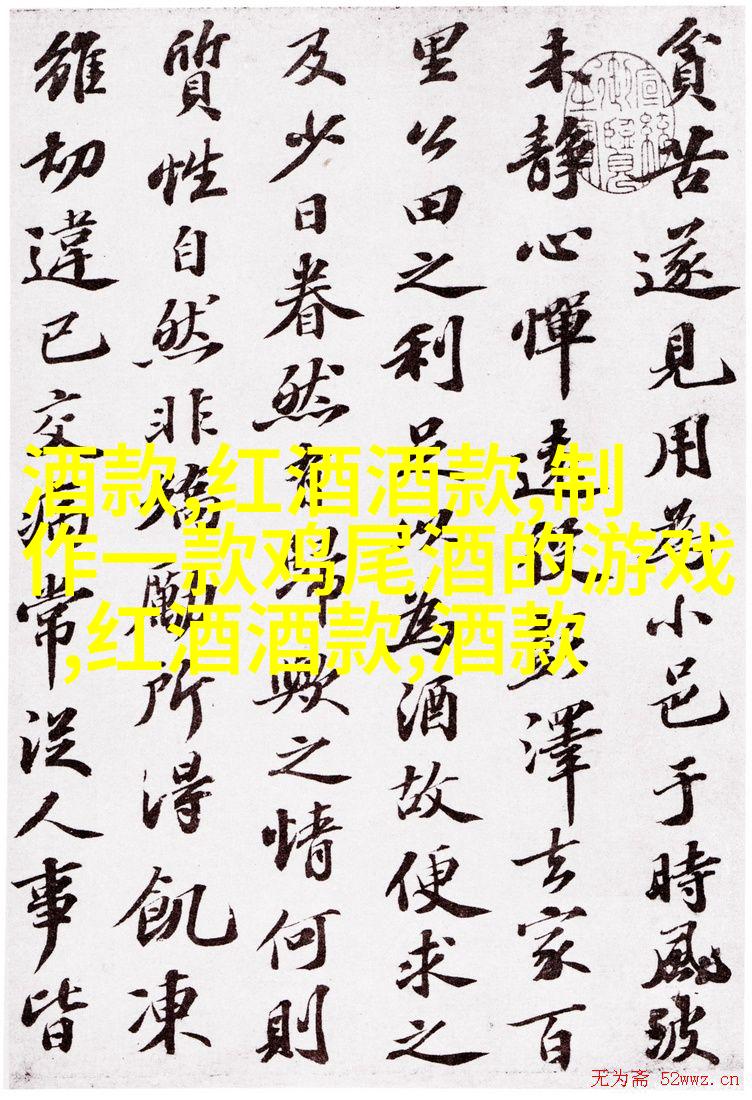 貧苦遂見用為小邑于時風波
未靜心憚遠役彭澤去家百
里公田之利足以為酒故便求之
及少日眷然有歸歟之情何則
質性自然非矯勵所得飢凍
雖切違己交病常從人事皆
酒款,红酒酒款,制
作一款鸡尾酒的游戏
,红酒酒款,酒款
无为斋 52wwz.cn